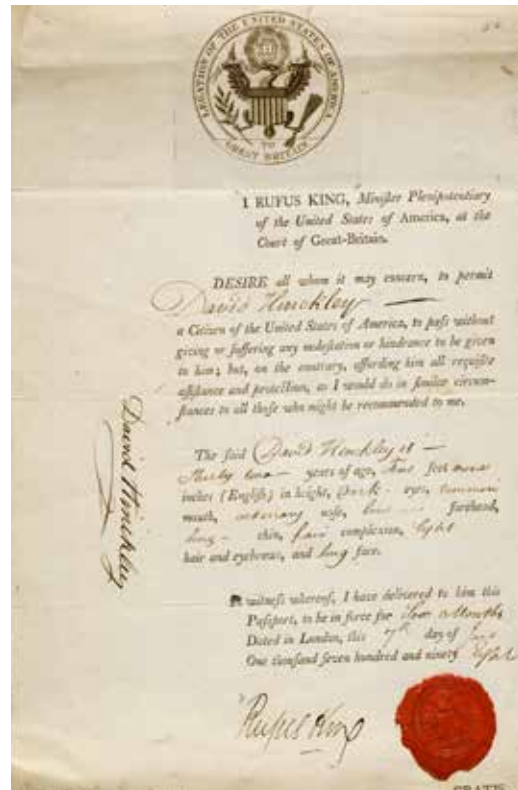 LEGATION OF THE UNITED STATES OF AMERICA
TO
GREAT BRITAIN
I RUFUS KING, Minister Plenipotentiary
of the United States of America, at the
Court of Great-Britain.
DESIRE all whom it may concern, to permit
David Hinckley
a Citizen of the United States of America, to paſs without
giving or ſuffering any moleſtation or hindrance to be given
to him; but, on the contrary, affording him all requiſite
aſſiſtance and protection, as I would do in ſimilar circum-
ſtances to all thoſe who might be recommended to me.
The ſaid David Hinckley is
Thirty two years of age, feet
inches (Engliſh) in height, Dark eyes, common
mouth, ordinary noſe, forehead,
long chin, fair complexion, light
hair and eyebrows, and long face.
In witneſs whereof, I have delivered to him this
Paſſport, to be in force for Months
Dated in London, this 7th day of
One thouſand ſeven hundred and ninety Eight
Rufus King
GRATIS
David Hinckley